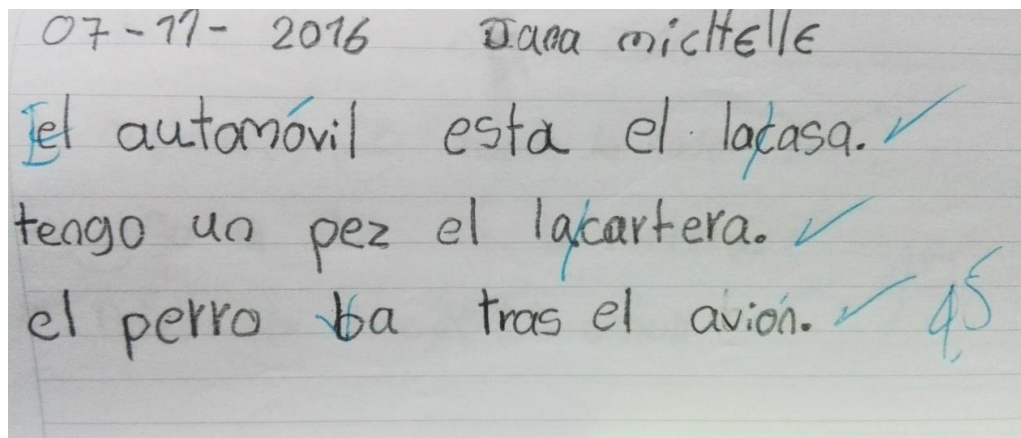 07-11-2016 Dana michelle
el automóvil esta el lacasa.
tengo un pez el lacartera.
el perro ba tras el avión. 4,5